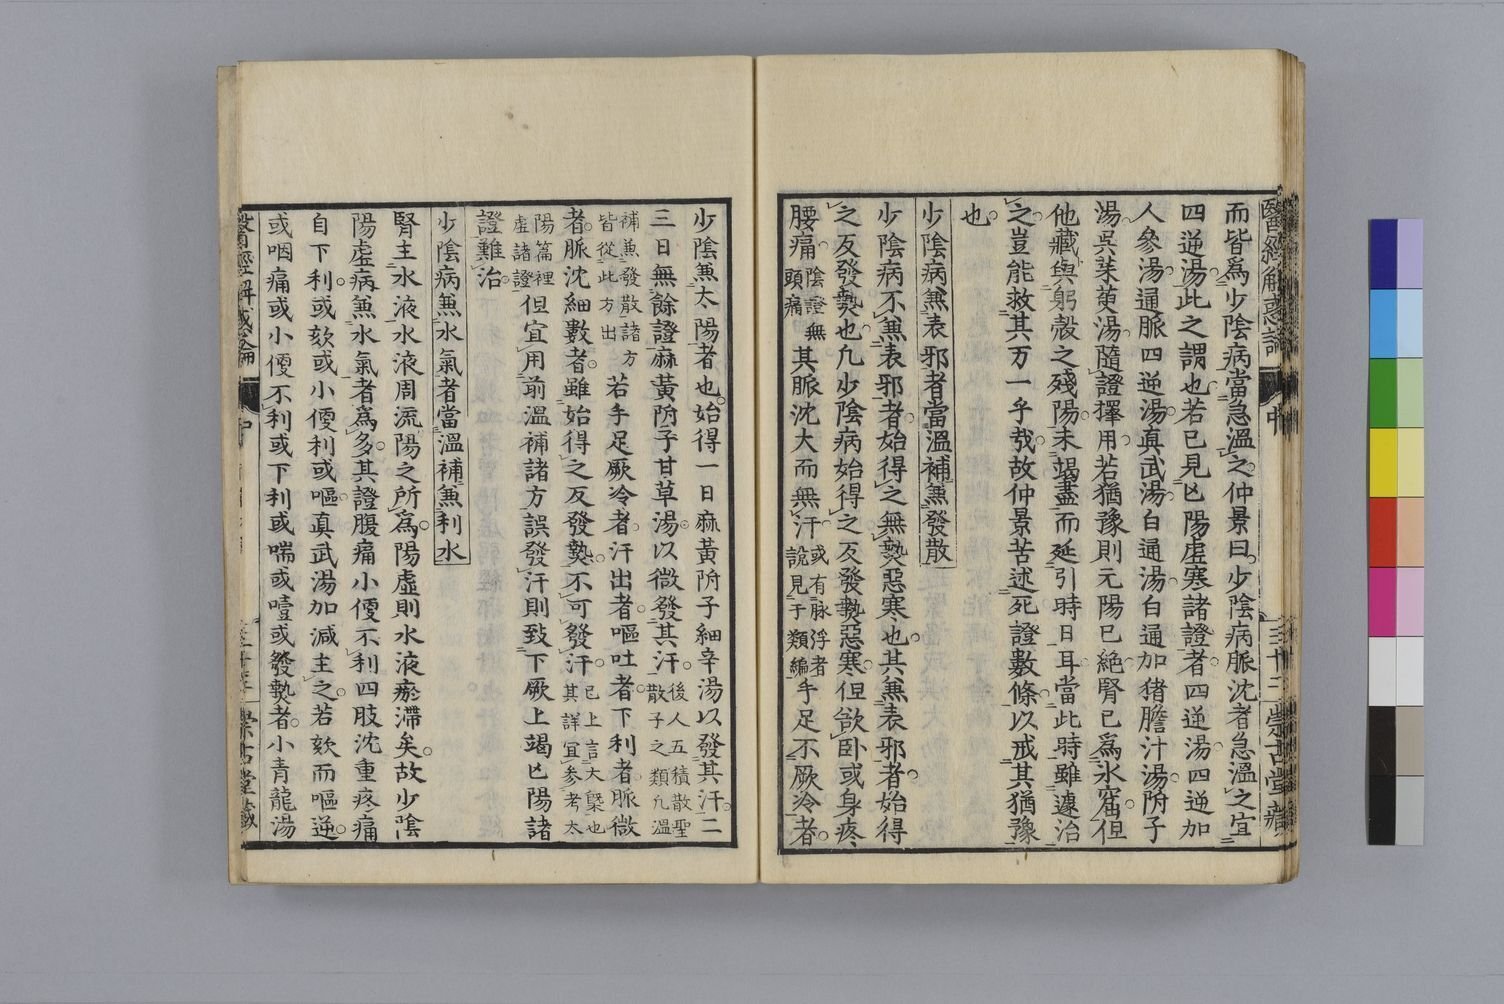 醫經解惑論 中 三十二 崇古堂藏
而皆爲少陰病當急溫之仲景曰少陰病脈沈者急溫之宜
四逆湯此之謂也若已見亡陽虛寒諸證者四逆湯四逆加
人參湯通脈四逆湯真武湯白通湯白通加猪膽汁湯附子
湯吳茱萸湯隨證擇用若猶豫則元陽已絕腎已爲氷窟但
他藏與躬殼之殘陽未竭盡而延引時日耳當此時雖遽治
之豈能救其万一乎哉故仲景苦述死證數條以戒其猶豫
也
少陰病兼表邪者當溫補兼發散
少陰病不兼表邪者始得之無熱惡寒也其兼表邪者始得
之反發熱也凡少陰病始得之反發熱惡寒但欲臥或身疼
腰痛陰證無頭痛其脈沈大而無汗或有脈浮者說見于類編手足不厥冷者
少陰兼太陽者也始得一日麻黃附子細辛湯以發其汗二
三日無餘證麻黃附子甘草湯以微發其汗後人五積散聖散子之類凡溫
補兼發散諸方皆從此方出若手足厥冷者汗出者嘔吐者下利者脈微
者脈沈細數者雖始得之反發熱不可發汗已上言大槩也其詳宜參考太
陽篇裡虛諸證但宜用前溫補諸方誤發汗則致下厥上竭亡陽諸
證難治
少陰病兼水氣者當溫補兼利水
腎主水液水液周流陽之所爲陽虛則水液瘀滯矣故少陰
陽虛病兼水氣者爲多其證腹痛小便不利四肢沈重疼痛
自下利或欬或小便利或嘔真武湯加減主之若欬而嘔逆
或咽痛或小便不利或下利或喘或噎或發熱者小青龍湯
醫經解惑論 中 崇古堂藏